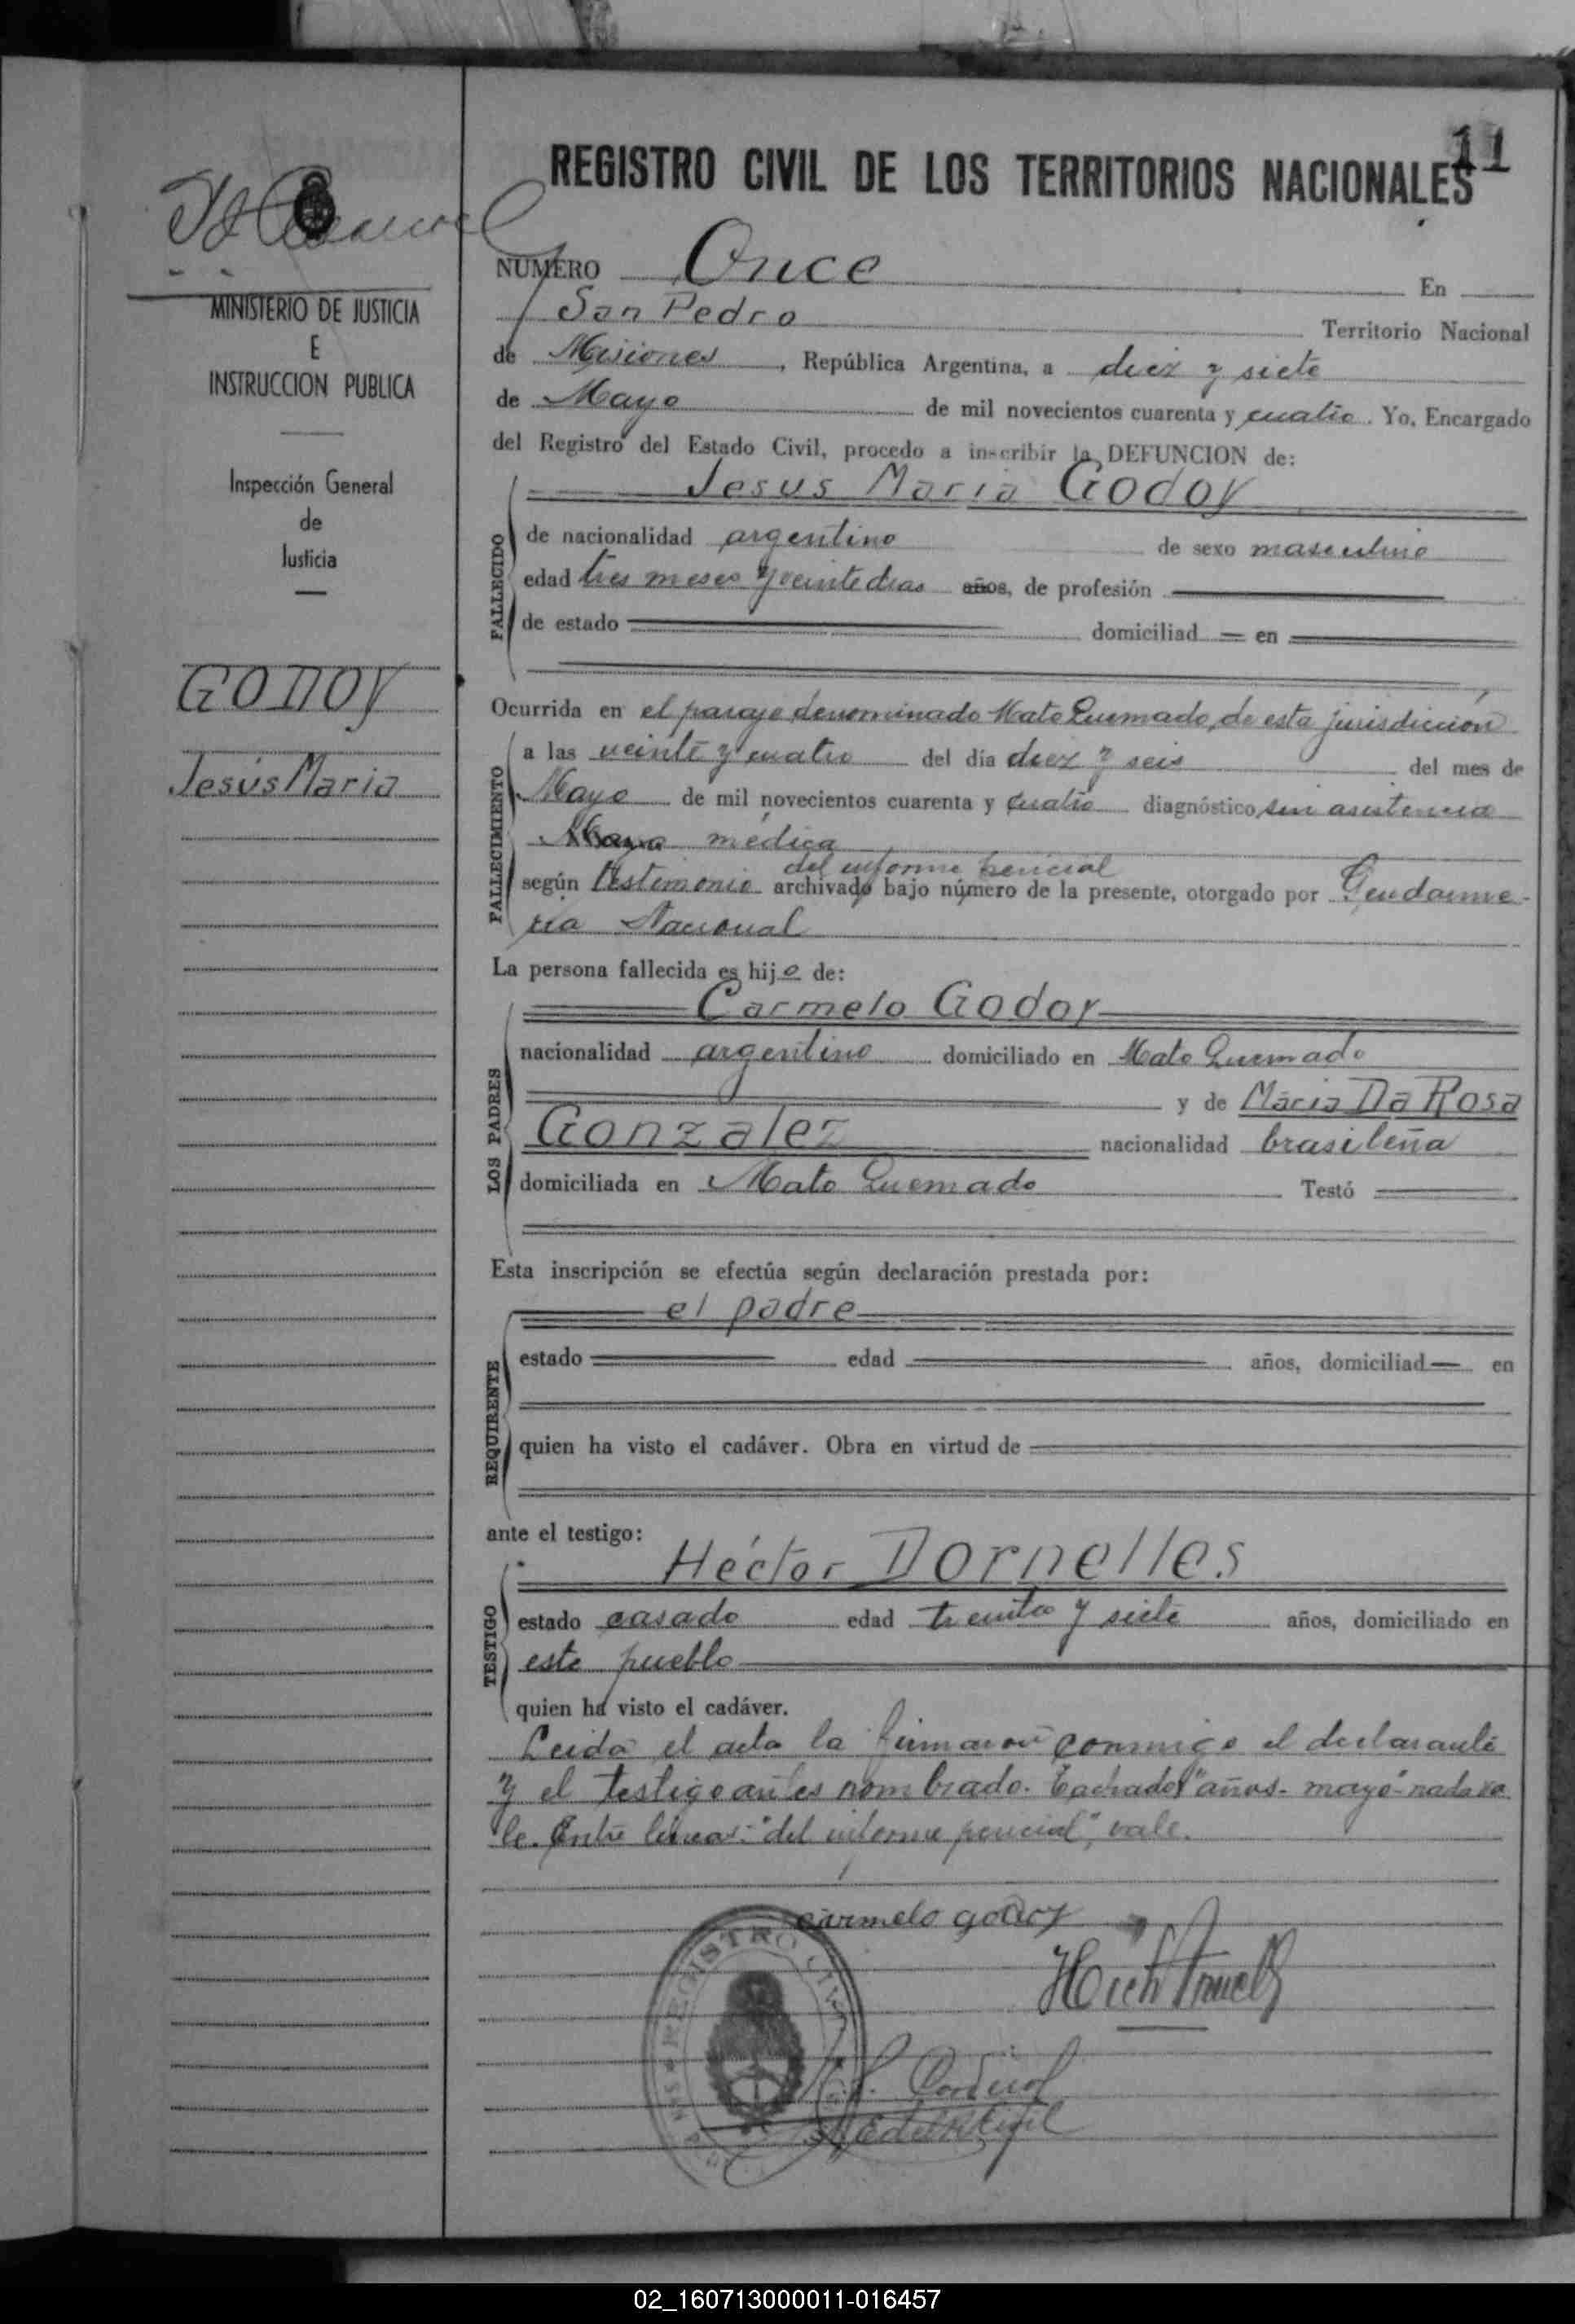 11
REGISTRO CIVIL DE LOS TERRITORIOS NACIONALES
NUMERO Once En
San Pedro Territorio Nacional
de Misiones, República Argentina, a diez y siete
de Mayo de mil novecientos cuarenta y cuatro. Yo, Encargado
del Registro del Estado Civil, procedo a inscribir la DEFUNCION de:
Jesus Maria Godoy
FALLECIDO
de nacionalidad argentino de sexo masculino
edad tres meses y veinte dias años, de profesión
de estado domiciliad en
Ocurrida en el paraje denominado Mato Quemado, de esta jurisdicción
FALLECIMIENTO
a las veinte y cuatro del día diez y seis del mes de
Mayo de mil novecientos cuarenta y cuatro diagnóstico sin asistencia
Mayo médica
del informe pericial
según testimonio archivado bajo número de la presente, otorgado por Gendarme-
ria Nacional
La persona fallecida es hijo de:
Carmelo Godoy
LOS PADRES
nacionalidad argentino domiciliado en Mato Quemado
y de Maria Da Rosa
Gonzalez nacionalidad brasileña
domiciliada en Mato Quemado Testó
Esta inscripción se efectúa según declaración prestada por:
el padre
REQUIRENTE
estado edad años, domiciliad en
quien ha visto el cadáver. Obra en virtud de
ante el testigo:
Héctor Dornelles
TESTIGO
estado casado edad treinta y siete años, domiciliado en
este pueblo
quien ha visto el cadáver.
Leida el acta la firmaron conmigo el declarante
y el testigo antes nombrado. Tachados "años - mayo" nada va
le. Entre lineas: "del informe pericial", vale.
carmelo godoy
REGISTRO CIVIL
MINISTERIO DE JUSTICIA
E
INSTRUCCION PUBLICA
Inspección General
de
Justicia
GODOY
Jesús Maria
02_160713000011-016457